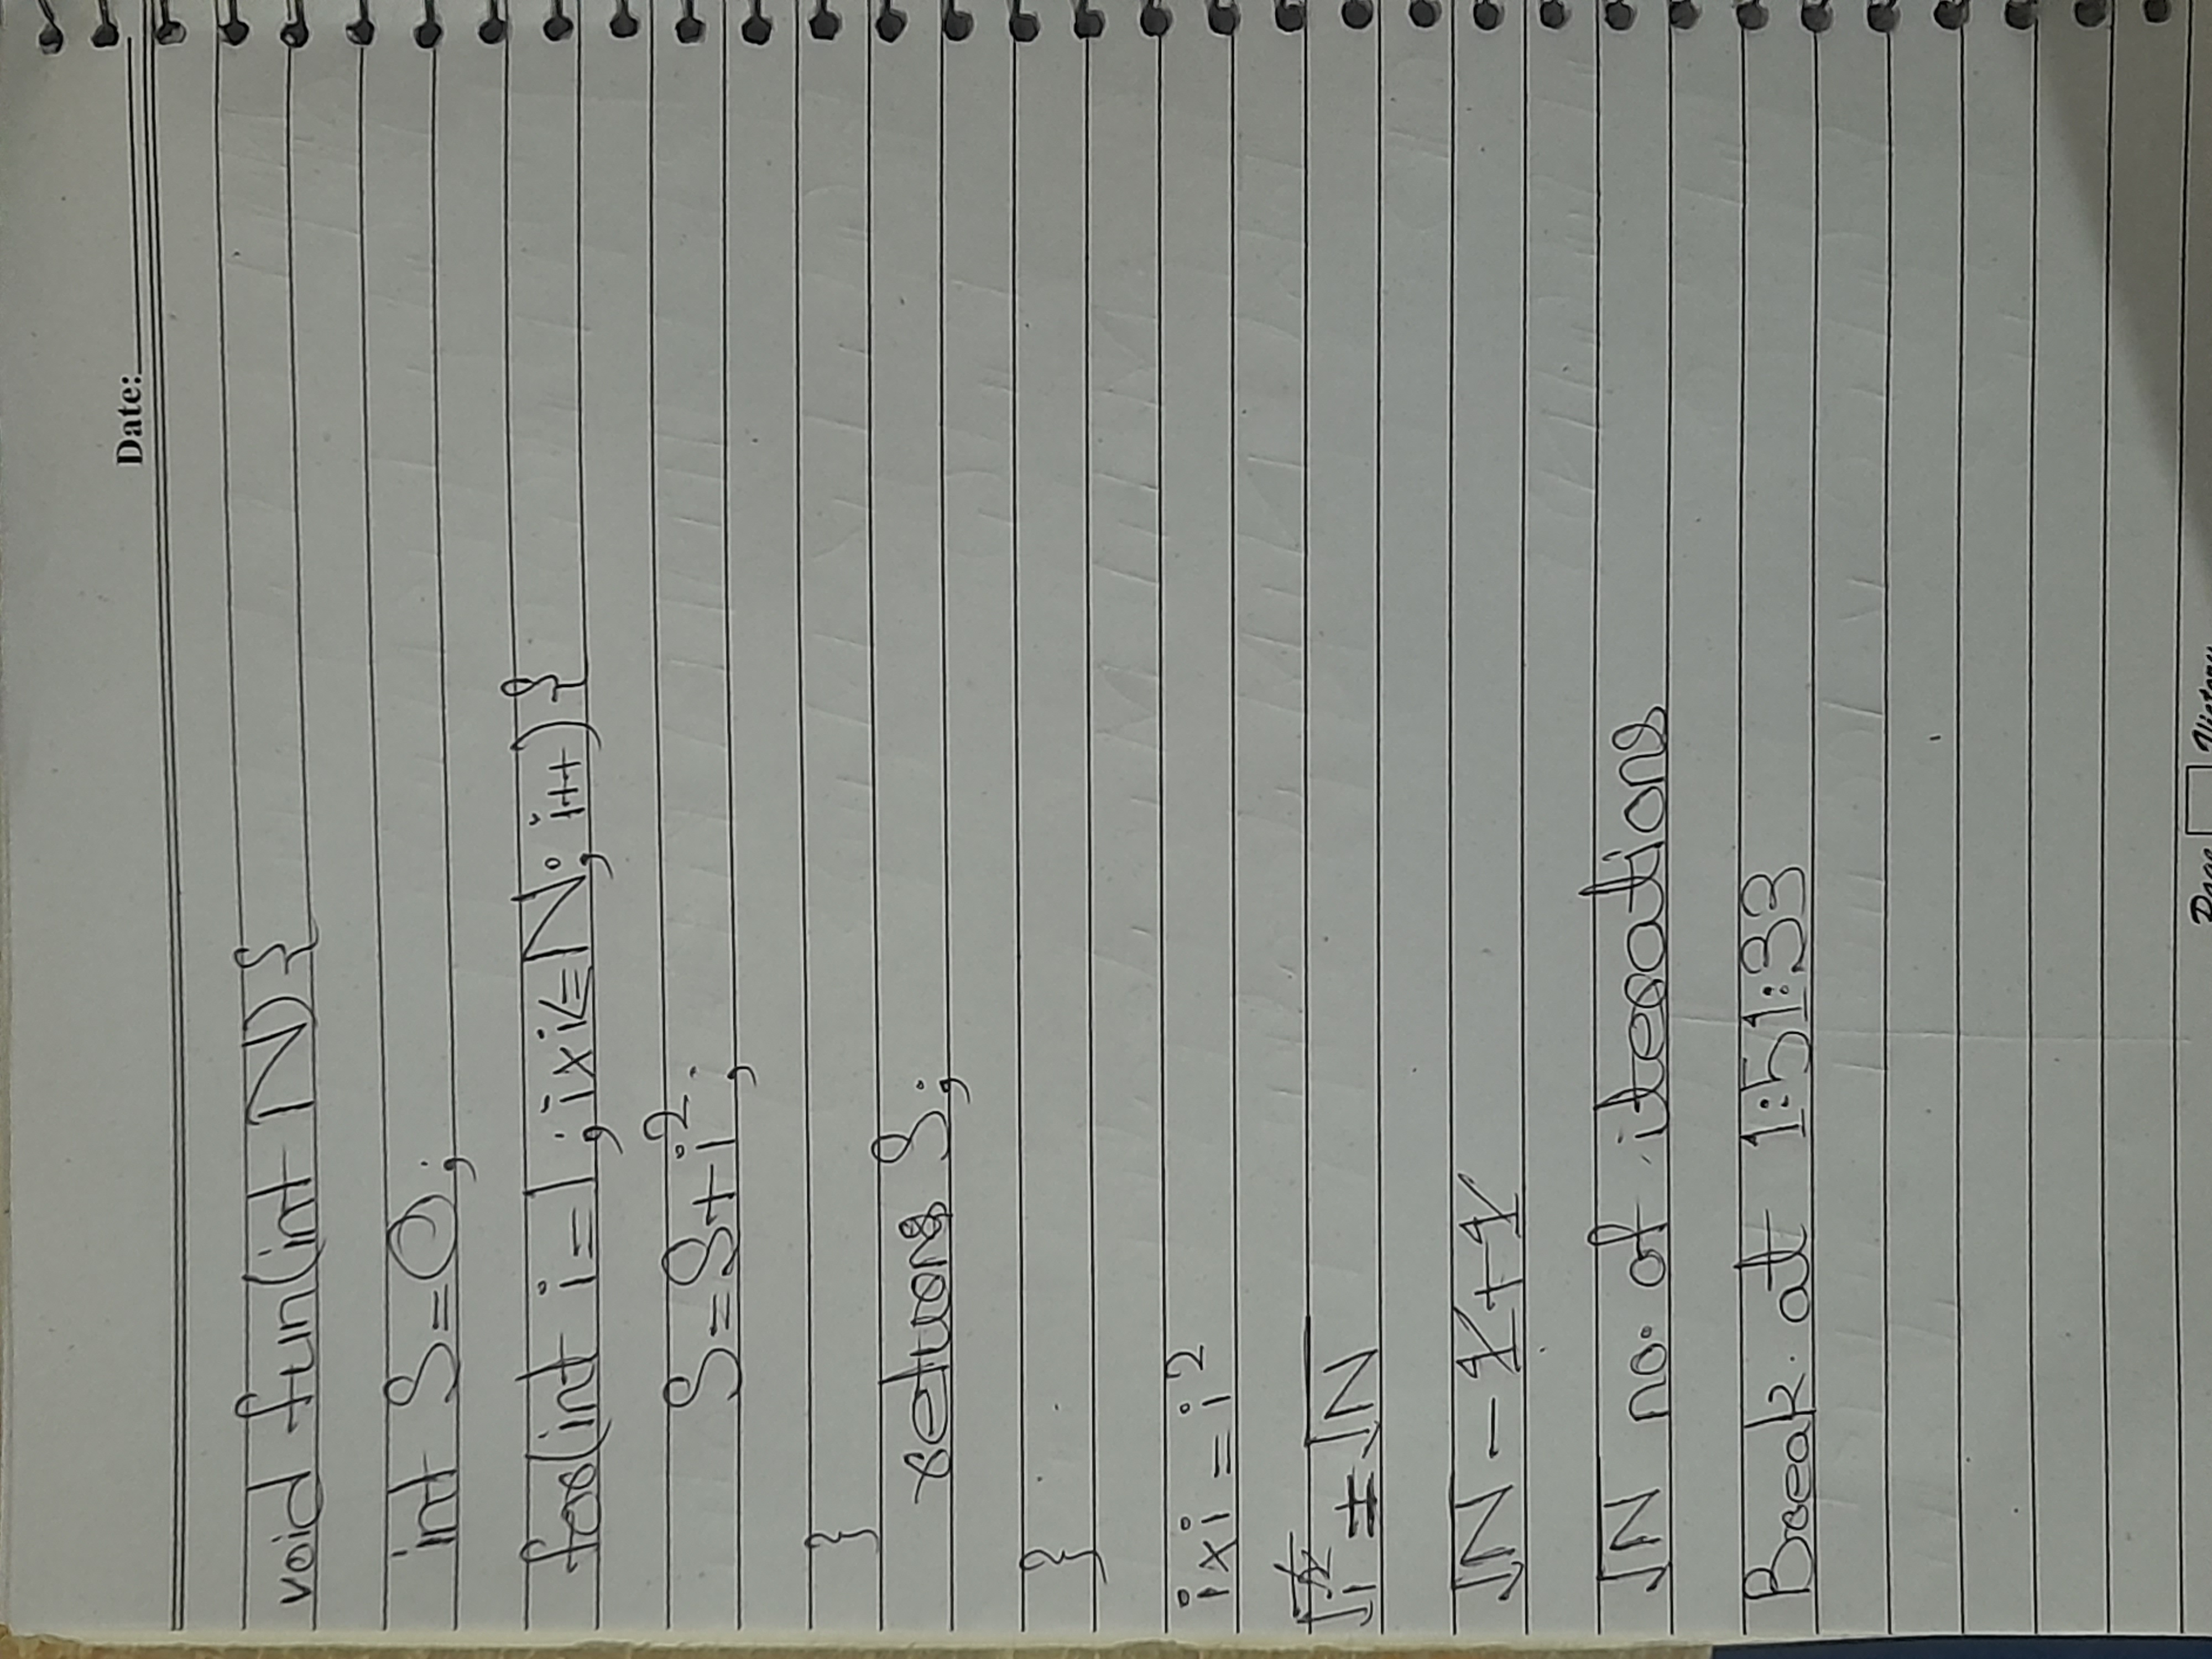 Date:
void fun(int N){
int S=0;
for(int i=1; i×i<=N; i++){
S=S+i²;
}
return S;
}
i×i = i²
√i² = √N
√N - 1 + 1
√N no. of iterations
Break at 1:51:33
Page